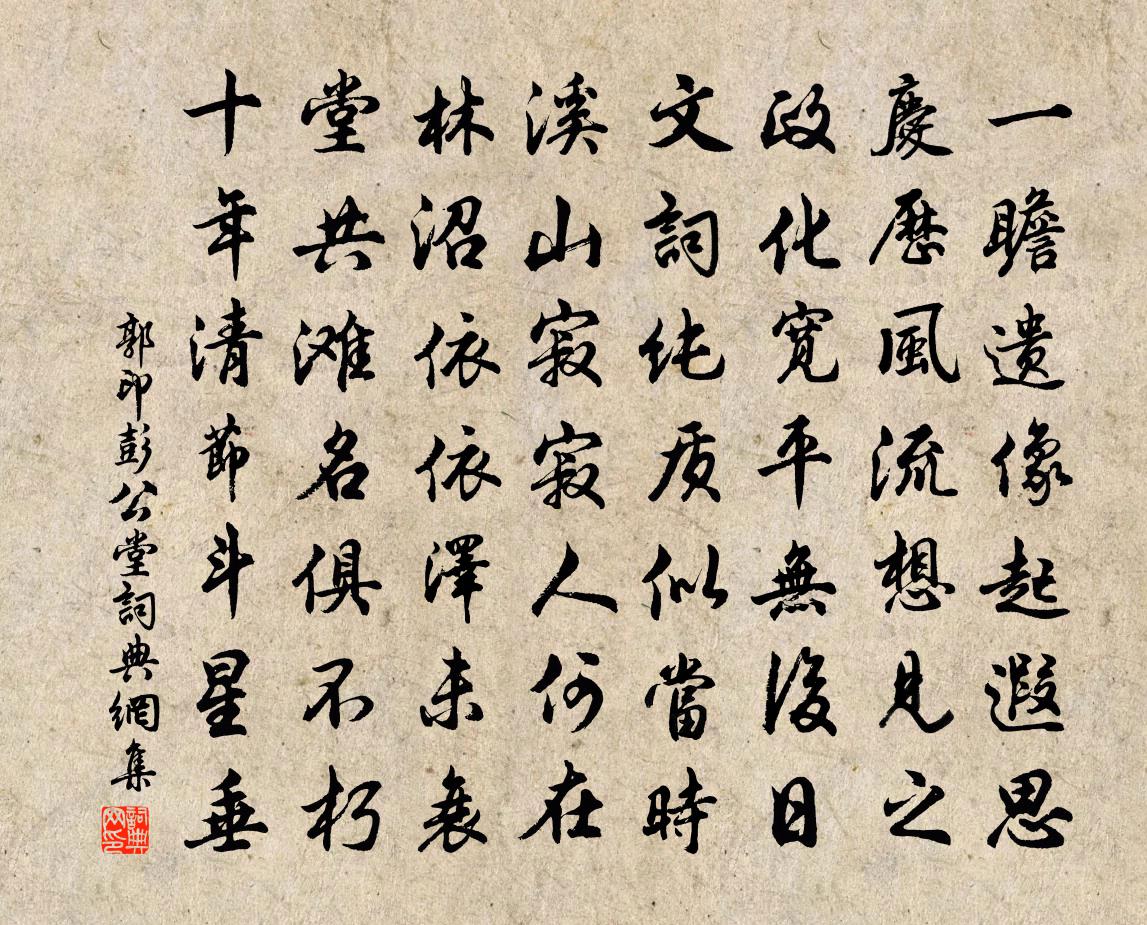 一瞻遗像起遐思
慶歷風流想見之
政化寬平無後日
文詞純质似當時
溪山寂寂人何在
林沼依依澤未衰
堂共滩名俱不朽
十年清節斗星垂
郭印彭公堂詞典網集
詞典
网印